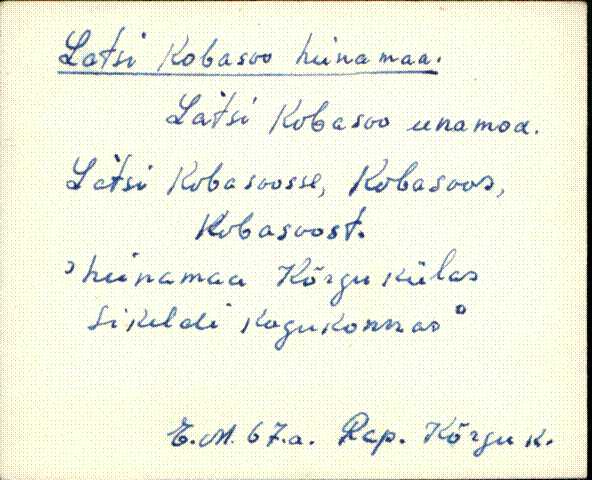 Latsi Kobasoo heinamaa.
Lat̀si Kobasoo einamoa.
Lat̀si Kobasoosse, Kobasoos,
Kobasoost.
"heinamaa Kõrgu külas
Sikeldi kogukonnas"
E.M. 67.a. Rap. Kõrgu k.